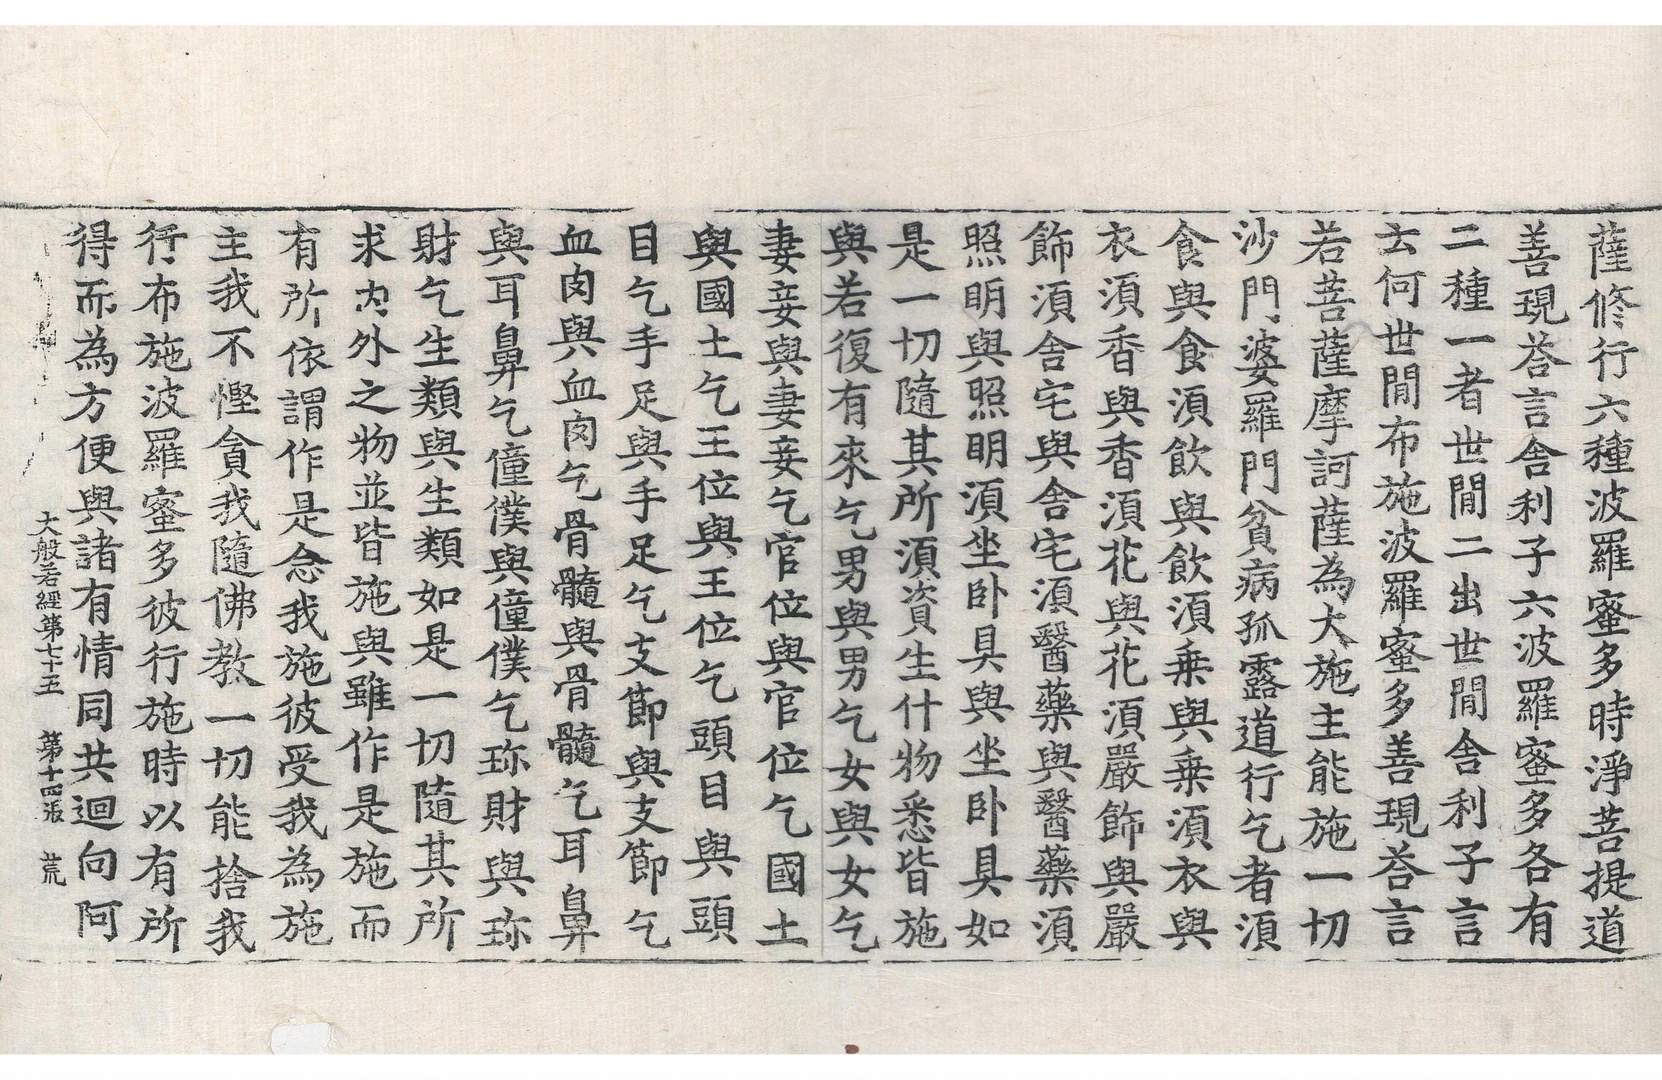 薩修行六種波羅蜜多時淨菩提道
善現荅言舍利子六波羅蜜多各有
二種一者世閒二出世閒舍利子言
云何世閒布施波羅蜜多善現荅言
若菩薩摩訶薩為大施主能施一切
沙門婆羅門貧病孤露道行乞者湏
食與食湏飲與飲湏乗與乗湏衣與
衣湏香與香湏花與花湏嚴飾與嚴
飾湏舍宅與舍宅湏醫藥與醫藥湏
照明與照明湏坐卧具與坐卧具如
是一切隨其所湏資生什物悉皆施
與若復有來乞男與男乞女與女乞
妻妾與妻妾乞官位與官位乞國土
與國土乞王位與王位乞頭目與頭
目乞手足與手足乞支節與支節乞
血肉與血肉乞骨髓與骨髓乞耳鼻
與耳鼻乞僮僕與僮僕乞珎財與珎
財乞生類與生類如是一切隨其所
求内外之物並皆施與雖作是施而
有所依謂作是念我施彼受我為施
主我不慳貪我隨佛教一切能捨我
行布施波羅蜜多彼行施時以有所
得而為方便與諸有情同共迴向阿
大般若經第七十五 第十四張 荒